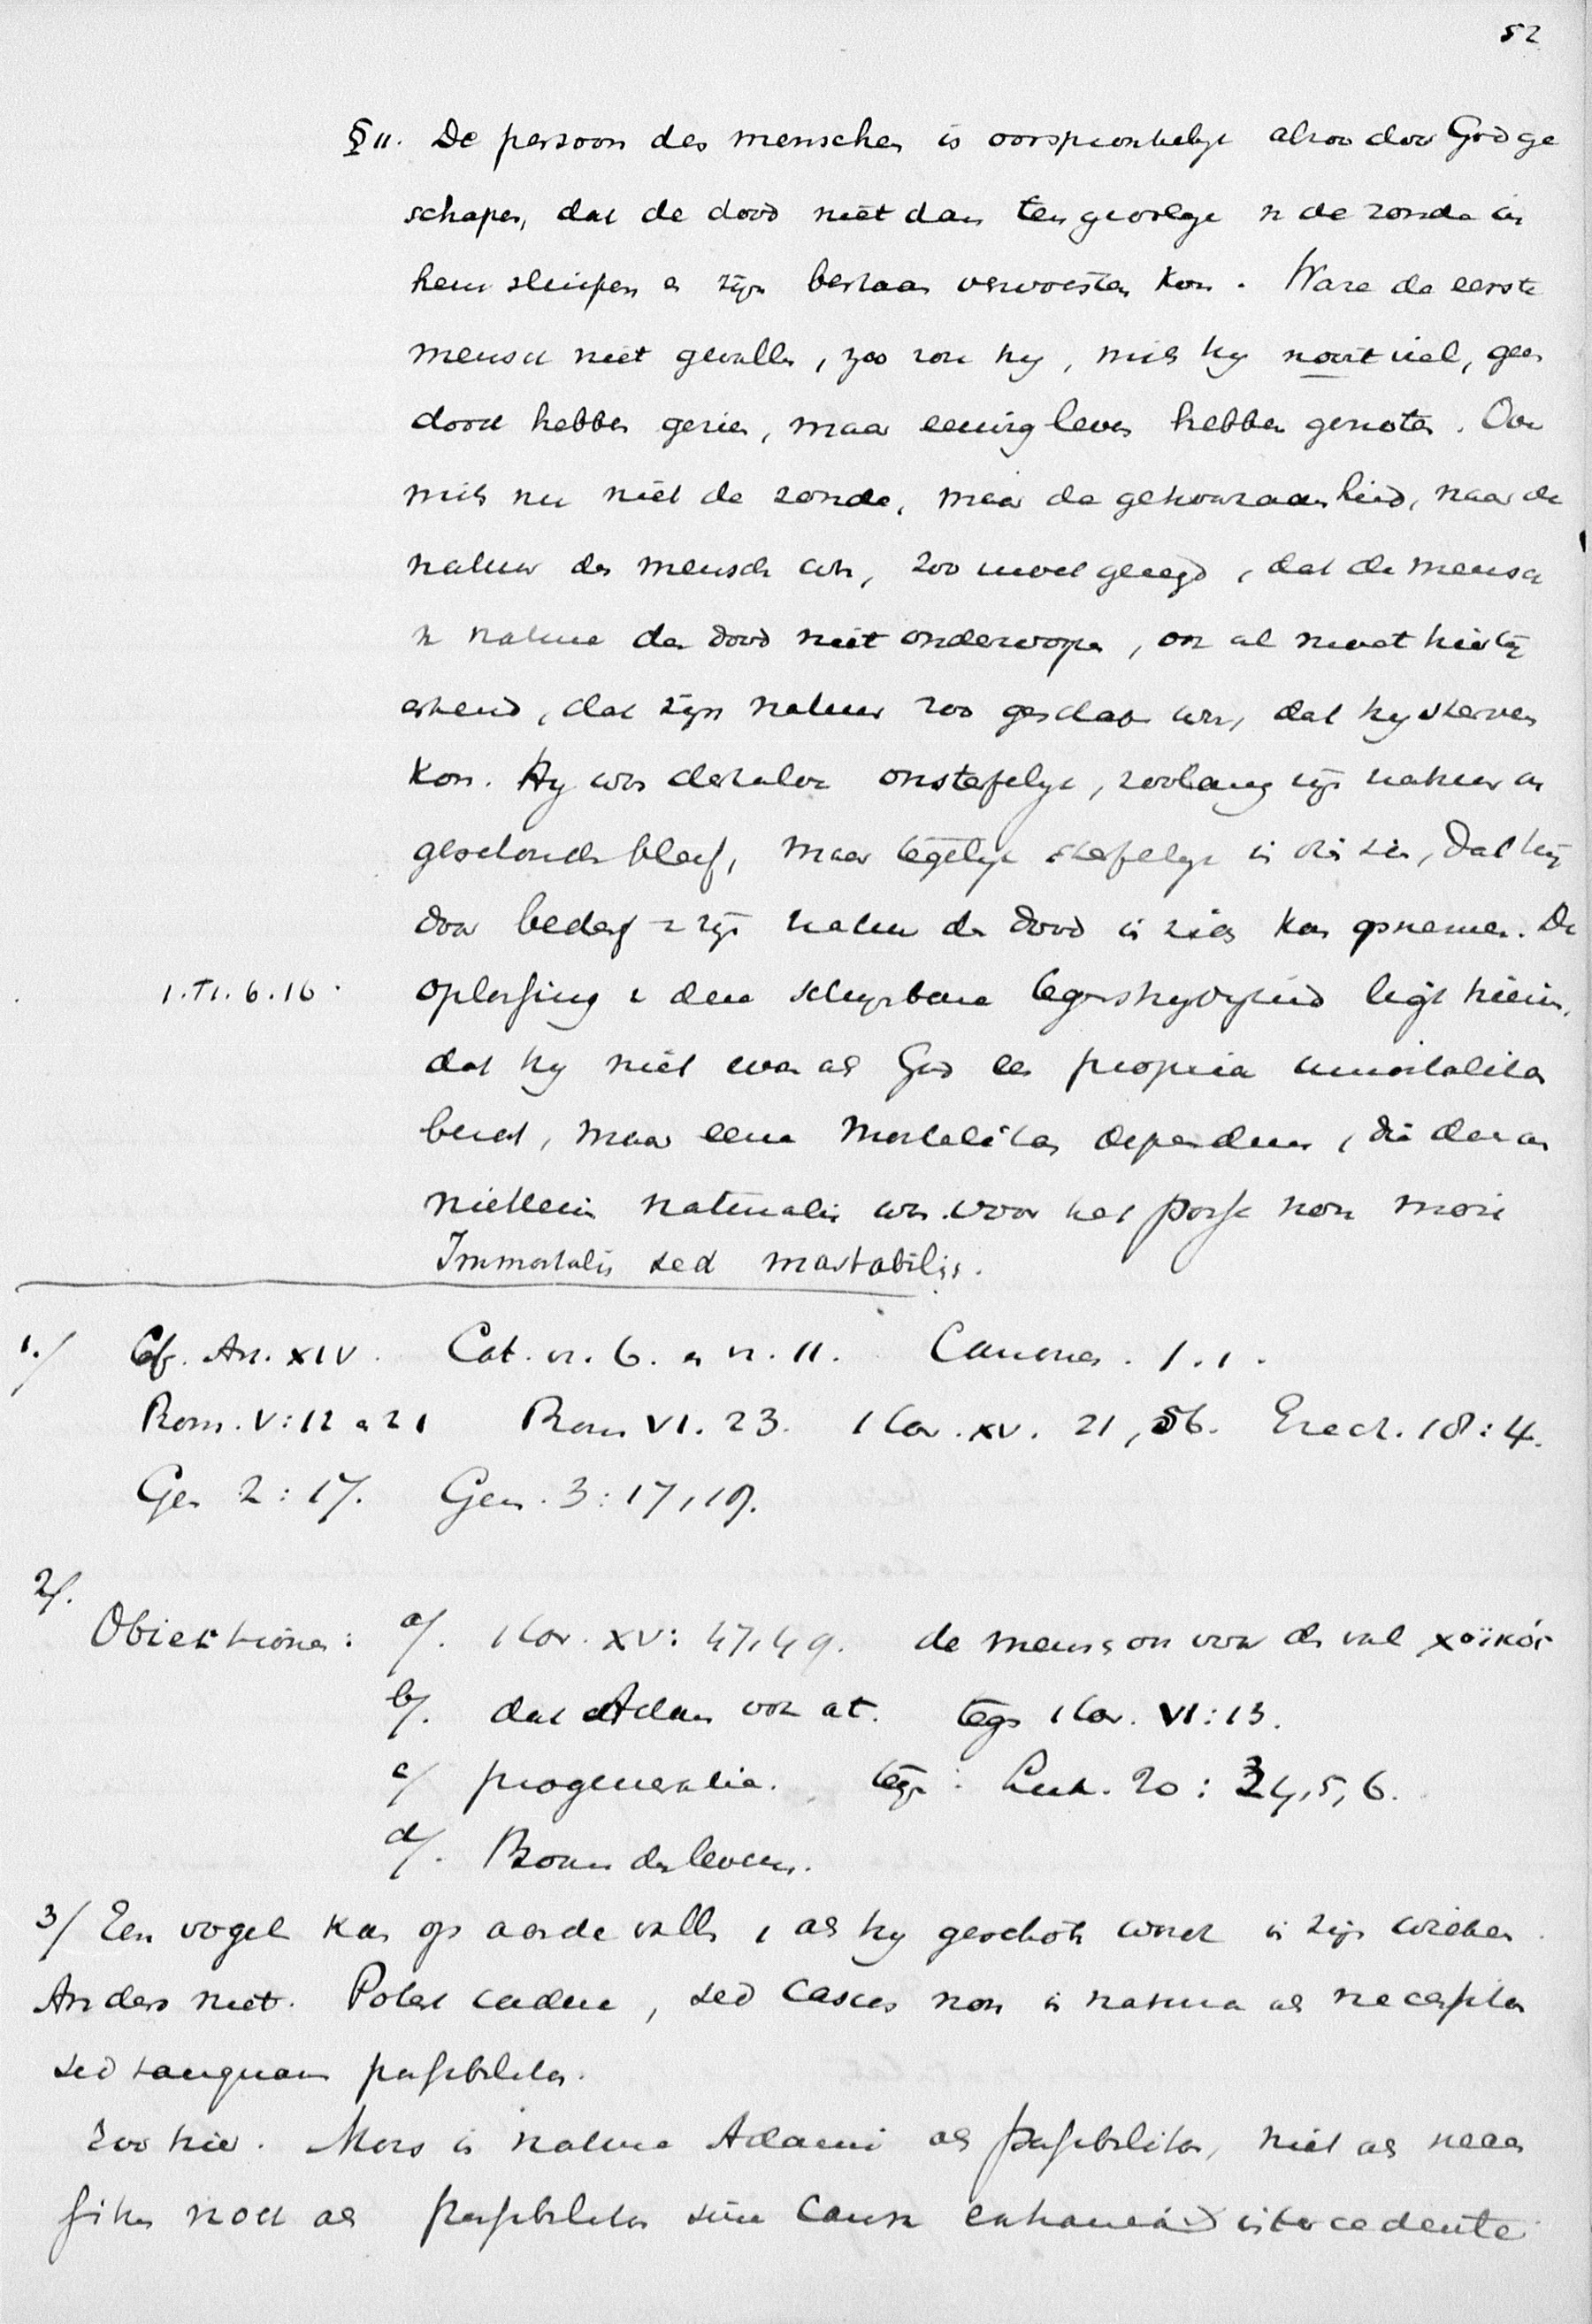 52
§ 11. De persoon des menschen is oorspronkelijk alzoo door God ge
schapen, dat de dood niet dan ten gevolge v de zonde in
hem sluipen en zijn bestaan verwoesten kon. Ware de eerste
mensch niet gevallen, zoo zou hij, mits hij nooit viel, geen
dood hebben gezien, maar eeuwig leven hebben genoten. Over
mits nu niet de zonde, maar de gehoorzaamheid, naar de
natuur des menschen was, zoo moet gezegd, dat de mensch
v nature den dood niet onderworpen, ook al moet hierbij
erkend, dat zijn natuur zoo geschapen was, dat hij sterven
kon. Hij was derhalve onsterfelijk, zoolang zijn natuur on
geschonden bleef, maar tegelijk sterfelijk in dien zin, dat hij
door bederf v zijn natuur den dood in zich kon opnemen. De
1. Ti. 6. 16. oplossing v deze schijnbare tegenstrijdigheid ligt hierin,
dat hij niet even als God een propria immortalitas
bezat, maar eene mortalitas dependens, die dan en
niettemin naturalis was voor het posse non mori
Immortalis sed mortabilis.
1./ Cf. Art. XIV. Cat. vr. 6. en vr. 11. Canones. 1. 1.
Rom. V: 12 en 21 Rom VI. 23. 1 Cor. XV. 21, 56. Ezech. 18: 4.
Gen 2: 17. Gen. 3: 17, 19.
2/.
Obiektiones: a/. 1 Cor. XV: 47, 49. de mensch ook voor den val χοϊκός
b/. dat Adam ook at. tegen 1 Cor. VI: 13.
c/ progeneratie. tegen: Luk. 20: 34, 5, 6.
d/. Boom des levens.
3/ Een vogel kan op aarde vallen, als hij geschoten wordt in zijn wieken.
Anders niet. Potest cadere, sed casus non in natura als necessitas
sed tanquam possibilitas.
Zoo hier. Mors in natura Adami als possibilitas, niet als neces
sitas noch als possibilitas sine causa extranea intercedente